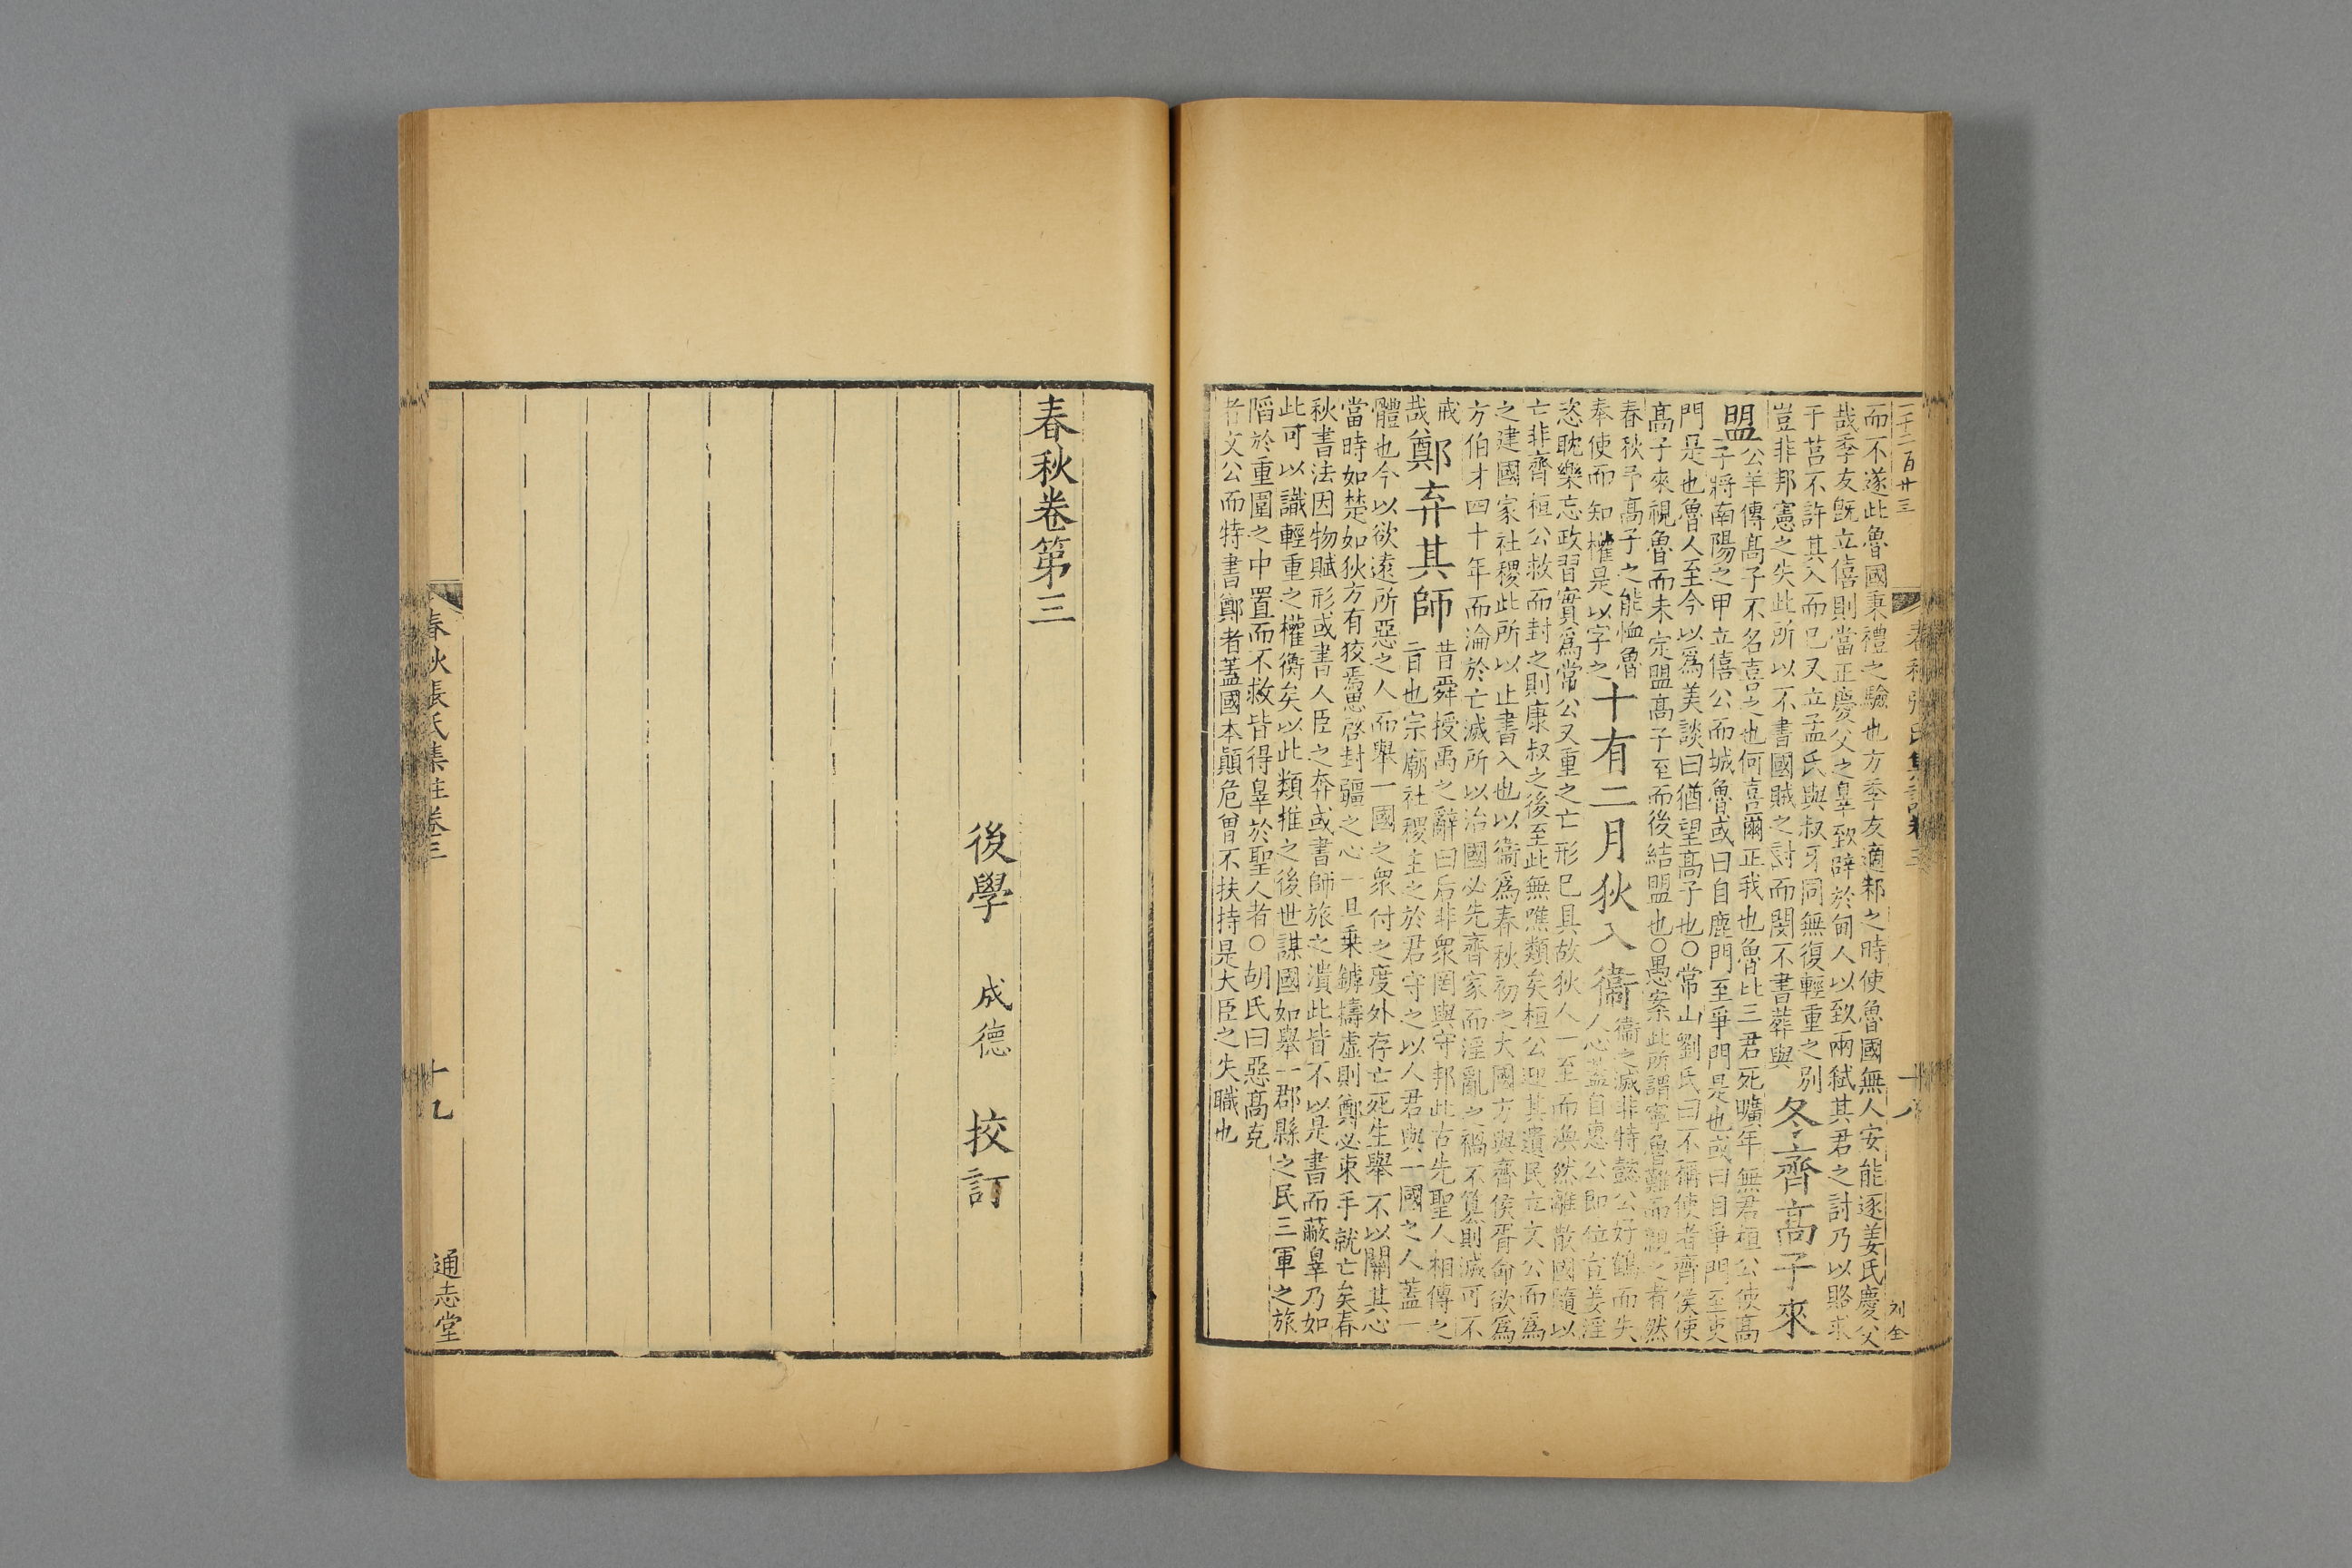 而不遂此魯國秉禮之驗也方季友適邾之時使魯國無人安能逐姜氏慶父
哉季友旣立僖則當正慶父之辠致辟於甸人以致兩弒其君之討乃以賂求
于莒不許其入而已又立孟氏與叔牙同無復輕重之別
豈非邦憲之失此所以不書國賊之討而閔不書葬與
冬齊高子來
盟
公羊傳高子不名喜之也何喜爾正我也魯比三君死曠年無君桓公使高
子將南陽之甲立僖公而城魯或曰自鹿門至爭門是也或曰自爭門至吏
門是也魯人至今以爲美談曰猶望高子也○常山劉氏曰不稱使者齊侯使
高子來視魯而未定盟高子至而後結盟也○愚案此所謂寧魯難而親之者然
春秋予高子之能恤魯
奉使而知權是以字之
十有二月狄入衞
衞之滅非特懿公好鶴而失
人心蓋自惠公即位宣姜淫
恣耽樂忘政習實爲常公又重之亡形已具故狄人一至而渙然離散國隨以
亡非齊桓公救而封之則康叔之後至此無噍類矣桓公迎其遺民立文公而爲
之建國家社稷此所以止書入也以衞爲春秋初之大國方與齊侯胥命欲爲
方伯才四十年而淪於亡滅所以治國必先齊家而淫亂之禍不篡則滅可不
戒
哉
鄭弃其師
昔舜授禹之辭曰后非衆罔與守邦此古先聖人相傳之
二百也宗廟社稷主之於君守之以人君與一國之人蓋一
體也今以欲遠所惡之人而舉一國之衆付之度外存亡死生舉不以關其心
當時如楚如狄方有狡焉思啓封疆之心一旦乗罅擣虛則鄭必束手就亡矣春
秋書法因物賦形或書人臣之奔或書師旅之潰此皆不以是書而蔽辠乃如
此可以識輕重之權衡矣以此類推之後世謀國如舉一郡縣之民三軍之旅
陷於重圍之中置而不救皆得辠於聖人者○胡氏曰惡高克
者文公而特書鄭者蓋國本顚危曾不扶持是大臣之失職也
春秋卷第三
後學 成德 挍訂
春秋張氏集註卷三
十九
通志堂